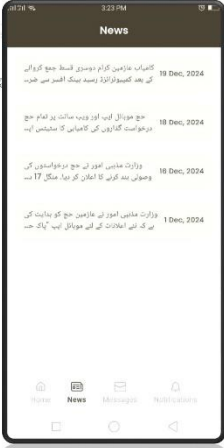 3:23 PM
News
کامیاب عازمین کرام دوسری قسط جمع کروانے
کے بعد کمپیوٹرائزڈ رسید بینک افسر سے ضر...
19 Dec, 2024
حج موبائل ایپ اور ویب سائٹ پر تمام حج
درخواست گذاروں کی کامیابی کا سٹیٹس اپ...
18 Dec, 2024
وزارت مذہبی امور نے حج درخواستوں کی
وصولی بند کرنے کا اعلان کر دیا. منگل 17 د...
16 Dec, 2024
وزارت مذہبی امور نے عازمین حج کو ہدایت کی
ہے کہ نئے اعلانات کے لئے موبائل ایپ "پاک حـ...
1 Dec, 2024
Home News Messages Notifications